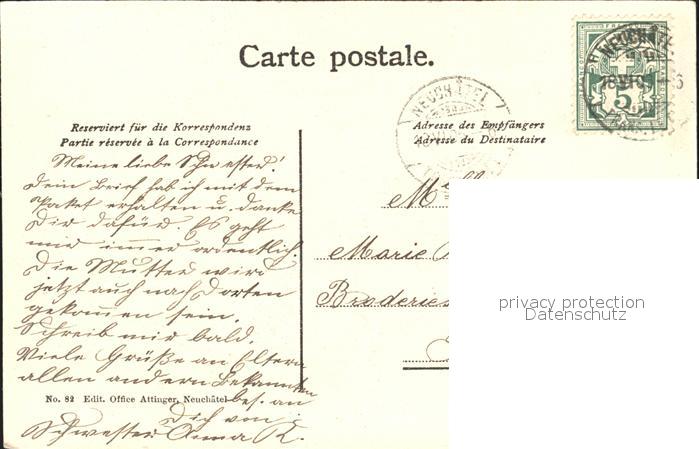 Carte postale.
NEUCHÂTEL
5
NEUCHÂTEL
Reserviert für die Korrespondenz
Partie réservée à la Correspondance
Adresse des Empfängers
Adresse du Destinataire
Meine liebe Schwester!
Dein Brief hab ich mit dem
Paket erhalten u. danke
Dir dafür. Es geht
mir immer ordentlich.
Die Mutter wird
jetzt auch nach dorten
gekommen sein.
Schreib mir bald.
Viele Grüße an Eltern
allen andern Bekannten
bes. an
Dich von
Schwester Anna K.
Mlle
Marie
Broderies
No. 82 Edit. Office Attinger, Neuchâtel
privacy protection
Datenschutz